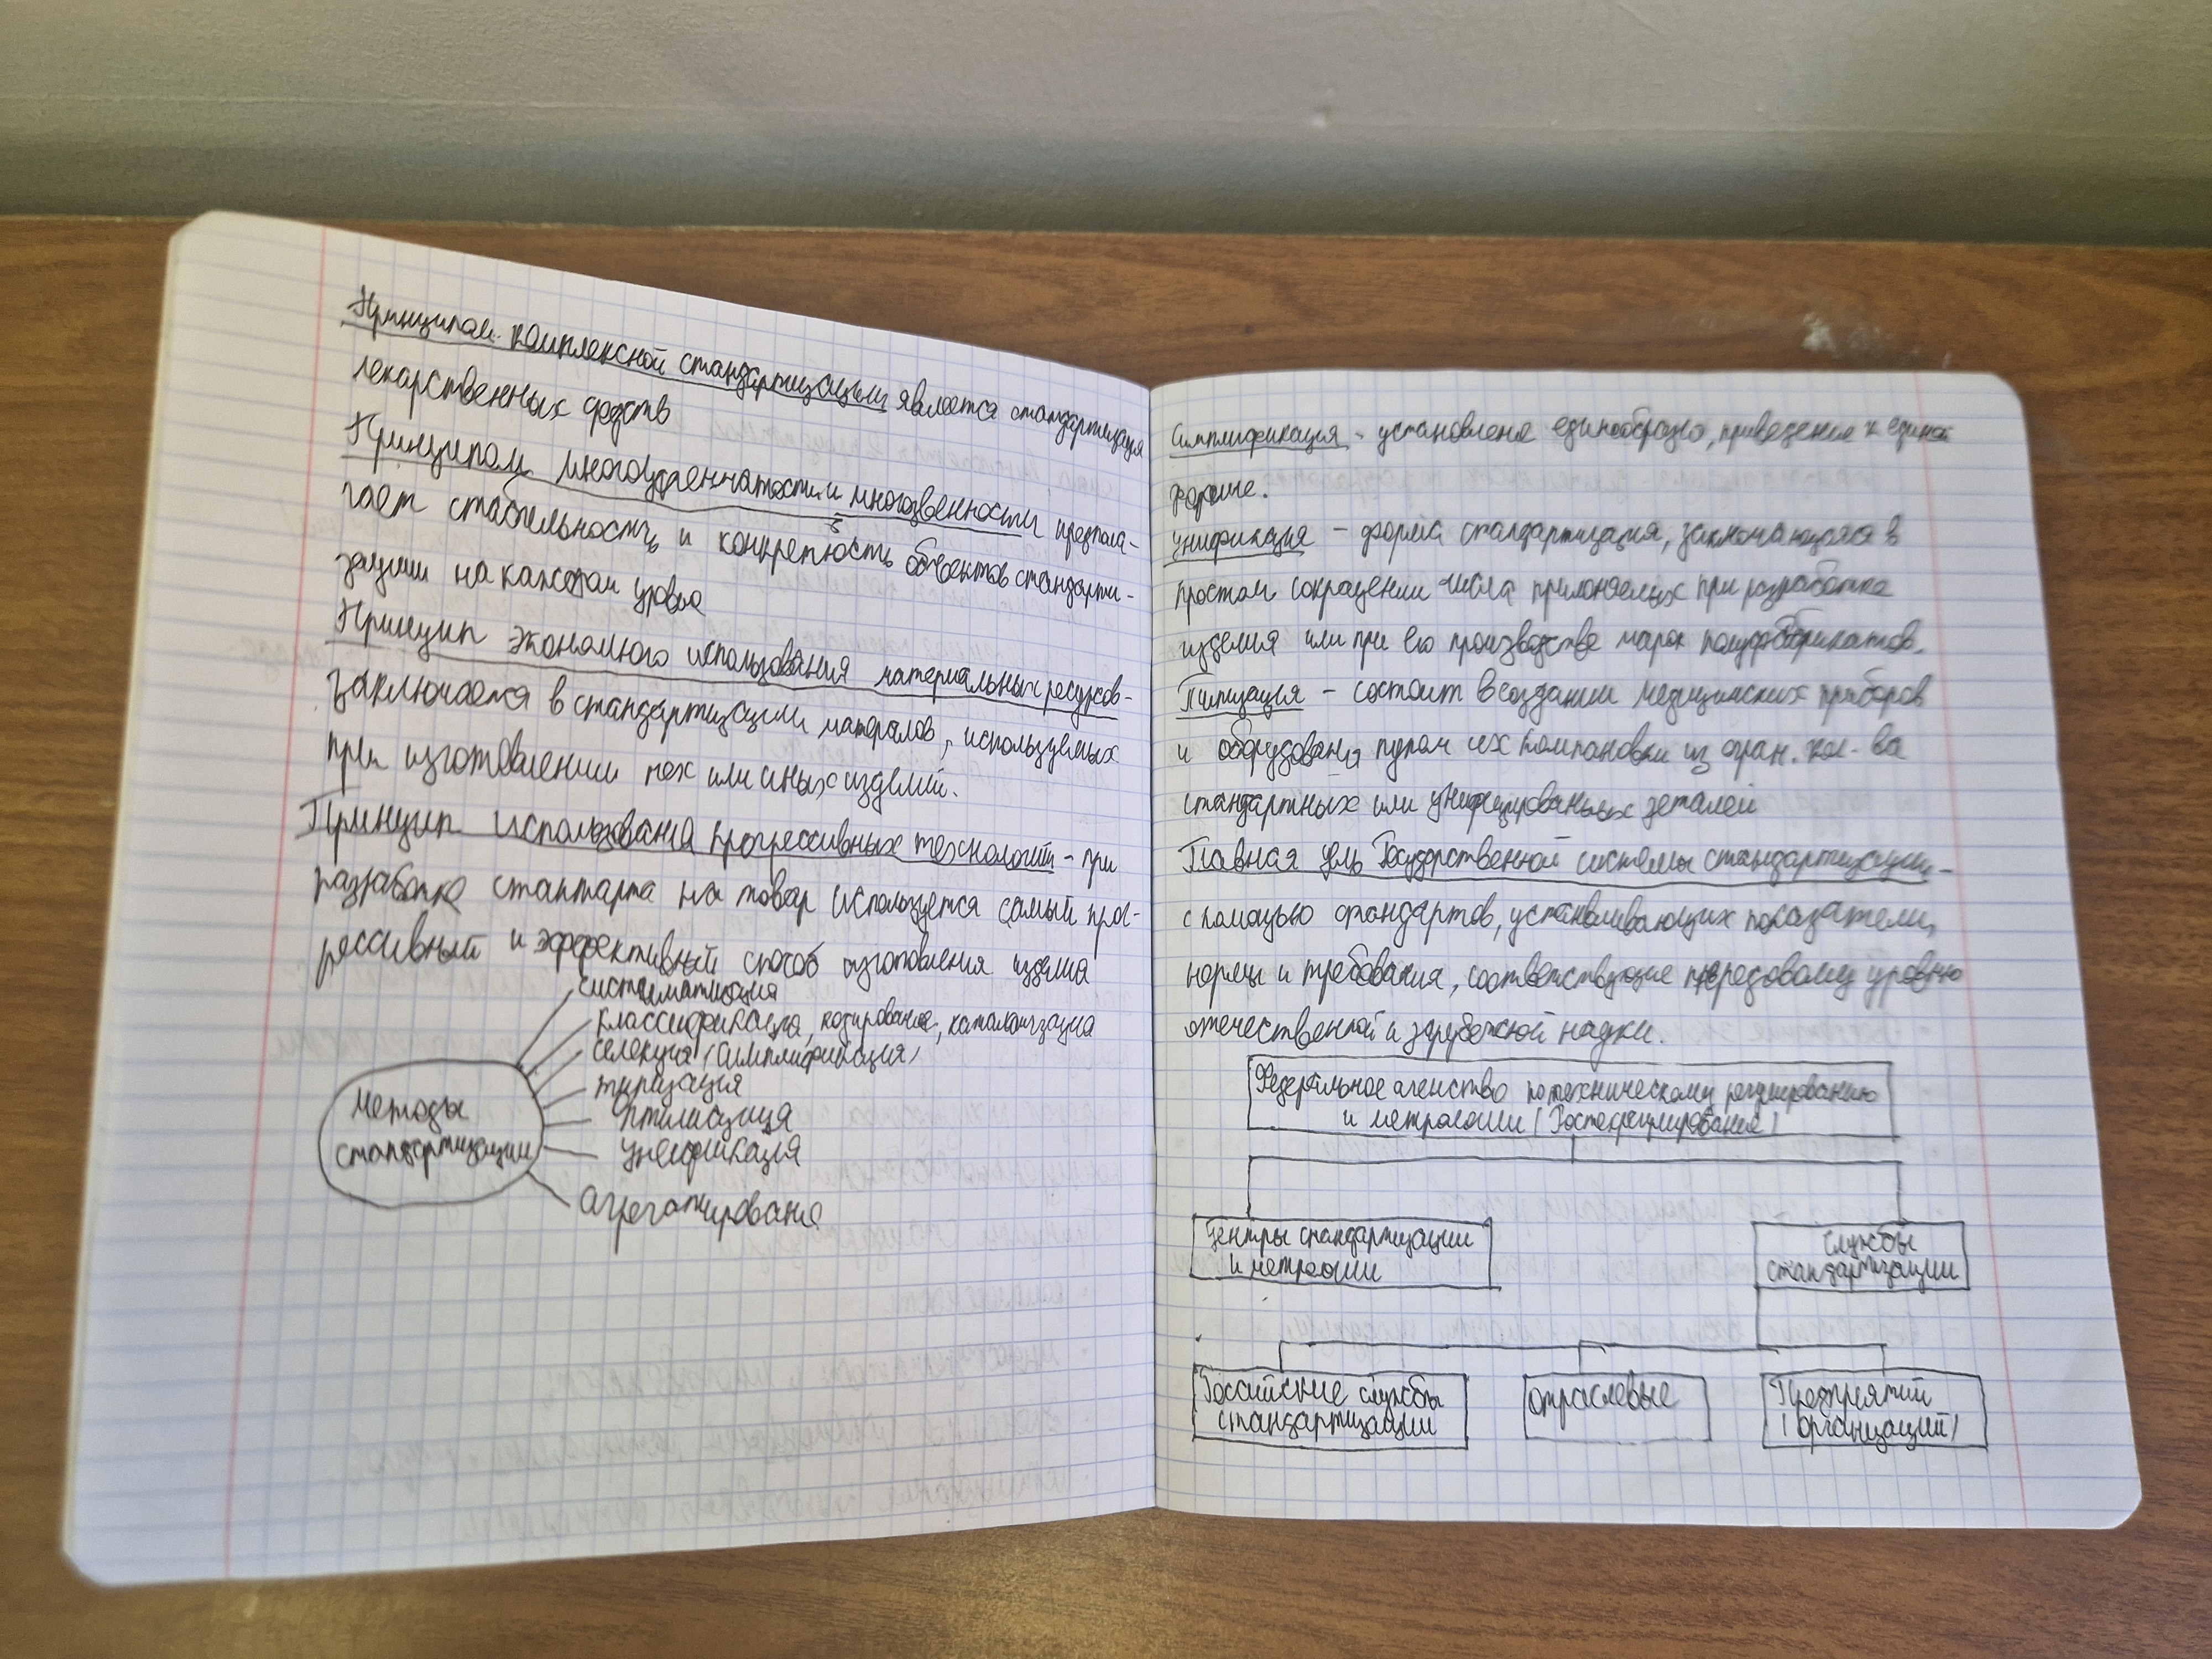 Принципом комплексной стандартизации является стандартизация
лекарственных средств
Принципом многоступенчатости и многозвенности предпола-
гает стабильность и конкретность объектов стандарти-
зации на каждом уровне
Принцип экономного использования материальных ресурсов-
заключается в стандартизации матералов, используемых
при изготовлении тех или иных изделий.
Принцип использования прогрессивных технологий - при
разработке стантарта на товар используется самый прог-
рессивный и эффективный способ изготовления изделия
Методы
стандартизации
систематизация
классификация, кодирование, каталогизация
селекция (симплификация)
типизация
оптимизация
унификация
агрегатирование
Симплификация - установление единообразия, приведение к единой
форме.
Унификация - форма стандартизация, заключающаяся в
простом сокращении числа применяемых при разработке
изделия или при его производстве марок полуфабрикатов.
Типизация - состоит в создании медицинских приборов
и оборудования путем их компановки из огран. кол-ва
стандартных или унифицированых деталей
Главная цель Государственной системы стандартизации -
с помощью стандартов, устанавливающих показатели,
нормы и требования, соответствующие передовому уровню
отечественной и зарубежной науки.
Федеральное агенство по техническому регулированию
и метрологии (Ростехрегулирование)
Центры стандартизации
и метрологии
Службы
стандартизации
Российские службы
стандартизации
отраслевые
Предприятий
(организаций)